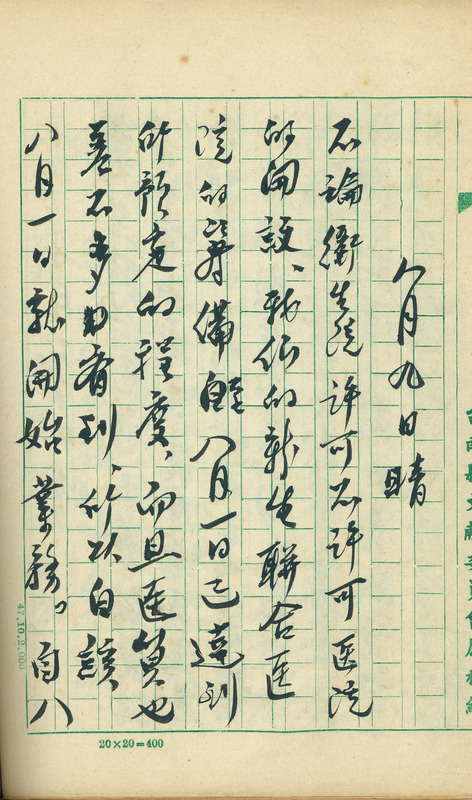 文獻委員會原稿紙
八月九日 晴
不論衛生院許可不許可医院
的開設、我們的新生聯合医
院的籌備八月一日已達到
所預定的程度、而且医員也
差不多看到、所以自該
八月一日就開始業務。自八
47.10.2,000
20×20=400